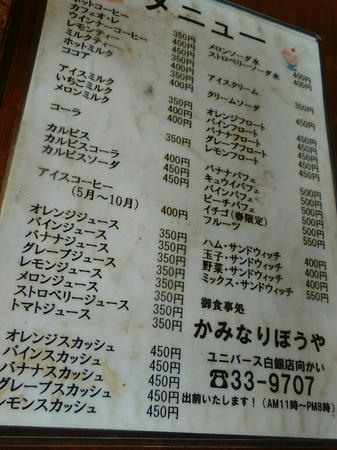 メニュー
ホットコーヒー
カフェ・オ・レ
ウインナーコーヒー
レモンティー
ミルクティー
ホットミルク
ココア
アイスミルク
いちごミルク
メロンミルク
コーラ 350円
カルピス
カルピスコーラ
カルピスソーダ
アイスコーヒー
(5月〜10月)
オレンジジュース 400円
パインジュース 350円
バナナジュース 350円
グレープジュース 350円
レモンジュース 350円
メロンジュース 350円
ストロベリージュース 350円
トマトジュース 350円
オレンジスカッシュ 450円
パインスカッシュ 450円
バナナスカッシュ 450円
グレープスカッシュ 450円
レモンスカッシュ 450円
メロンソーダ水 400円
ストロベリーソーダ水 400円
アイスクリーム 350円
クリームソーダ 450円
オレンジフロート
パインフロート
バナナフロート
グレープフロート
レモンフロート 450円
バナナパフェ 500円
キュウイパフェ 500円
パインパフェ 500円
ピーチパフェ 500円
イチゴ(春限定) 500円
フルーツ 550円
ハム・サンドウィッチ
玉子・サンドウィッチ
野菜・サンドウィッチ
ミックス・サンドウィッチ
御食事処
かみなりぼうや
ユニバース白銀店向かい
☎33-9707
出前いたします!(AM11時〜PM8時)